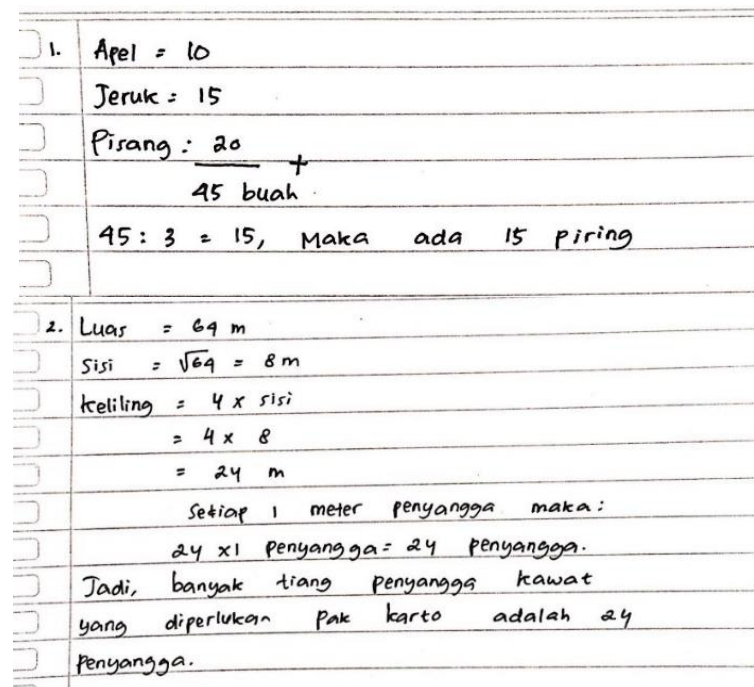 1. Apel = 10
Jeruk = 15
Pisang : 20 +
45 buah
45 : 3 = 15, Maka ada 15 piring
2. Luas = 64 m
Sisi = √64 = 8 m
Keliling = 4 x sisi
= 4 x 8
= 24 m
Setiap 1 meter penyangga maka :
24 x1 penyangga = 24 penyangga.
Jadi, banyak tiang penyangga kawat
yang diperlukan Pak karto adalah 24
Penyangga.